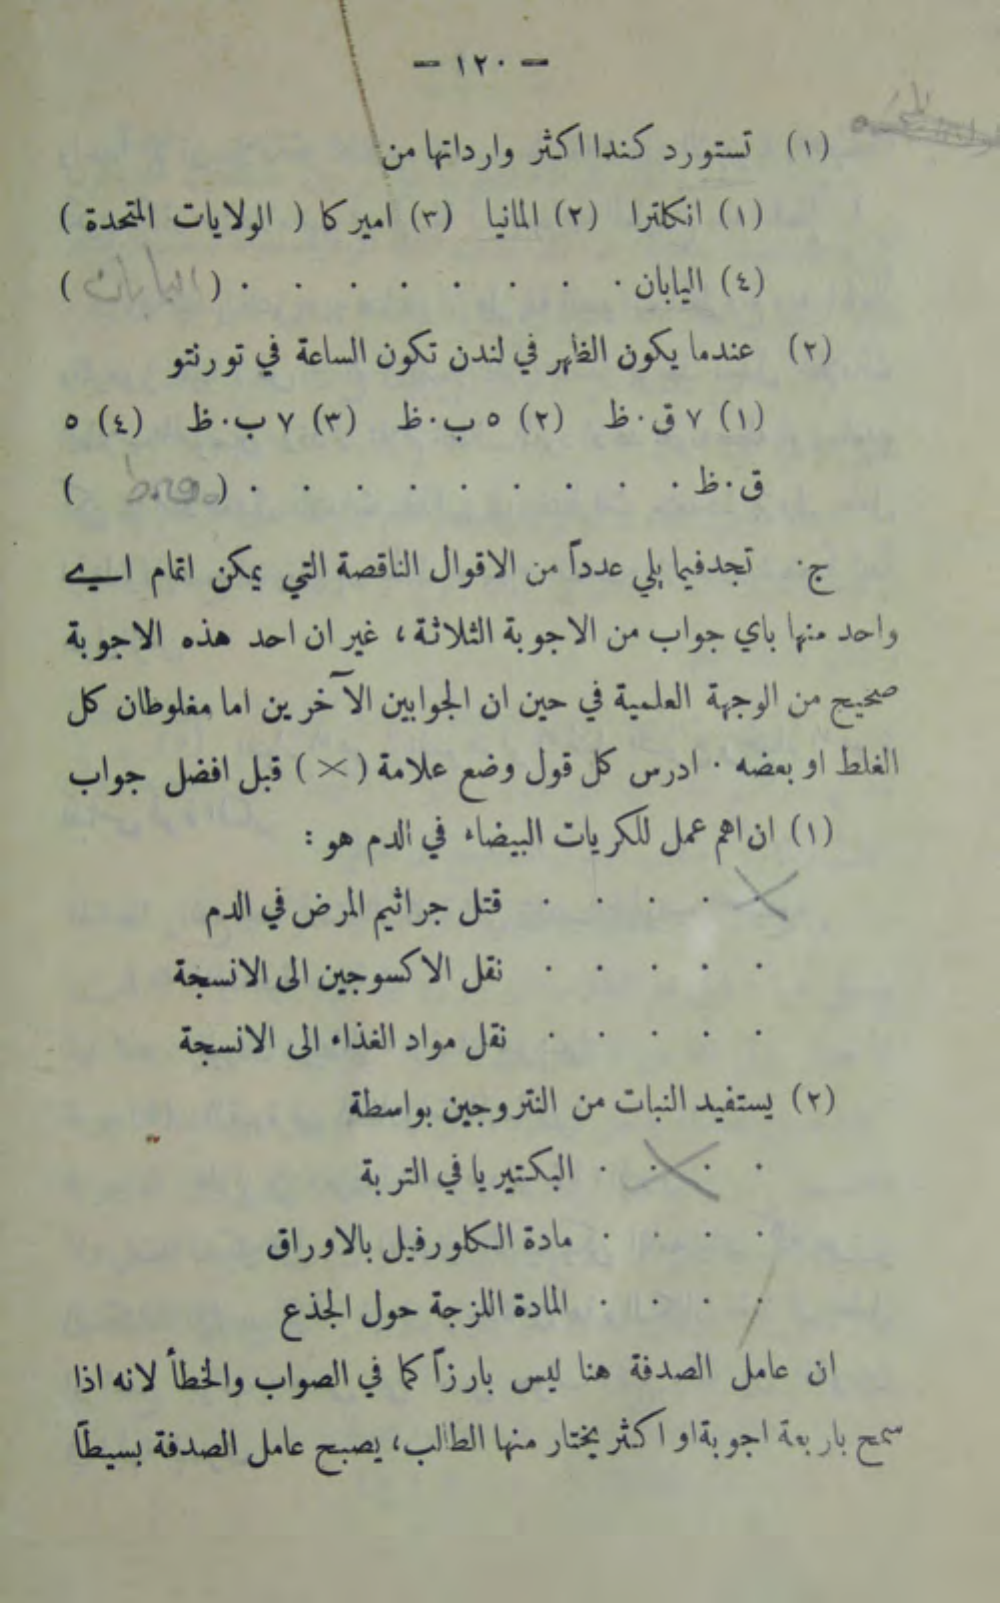 — ١٢٠ —
(١) تستورد كندا اكثر وارداتها من
(١) انكلترا (٢) المانيا (٣) اميركا ( الولايات المتحدة )
(٤) اليابان . . . . . . . . ( اليابان )
(٢) عندما يكون الظهر في لندن تكون الساعة في تورنتو
(١) ٧ ق.ظ (٢) ٥ ب.ظ (٣) ٧ ب.ظ (٤) ٥
ق.ظ . . . . . . . . . ( )
ج. تجد فيما يلي عدداً من الاقوال الناقصة التي يمكن اتمام اي
واحد منها باي جواب من الاجوبة الثلاثة ، غير ان احد هذه الاجوبة
صحيح من الوجهة العلمية في حين ان الجوابين الآخرين اما مغلوطان كل
الغلط او بعضه . ادرس كل قول وضع علامة ( × ) قبل افضل جواب
(١) ان اهم عمل للكريات البيضاء في الدم هو :
× . . . . قتل جراثيم المرض في الدم
. . . . . نقل الاكسوجين الى الانسجة
. . . . . نقل مواد الغذاء الى الانسجة
(٢) يستفيد النبات من النتروجين بواسطة
. . × . البكتيريا في التربة
. . . . مادة الكلورفيل بالاوراق
. . . . المادة اللزجة حول الجذع
ان عامل الصدفة هنا ليس بارزاً كما في الصواب والخطأ لانه اذا
سمح باربعة اجوبة او اكثر يختار منها الطالب ، يصبح عامل الصدفة بسيطاً